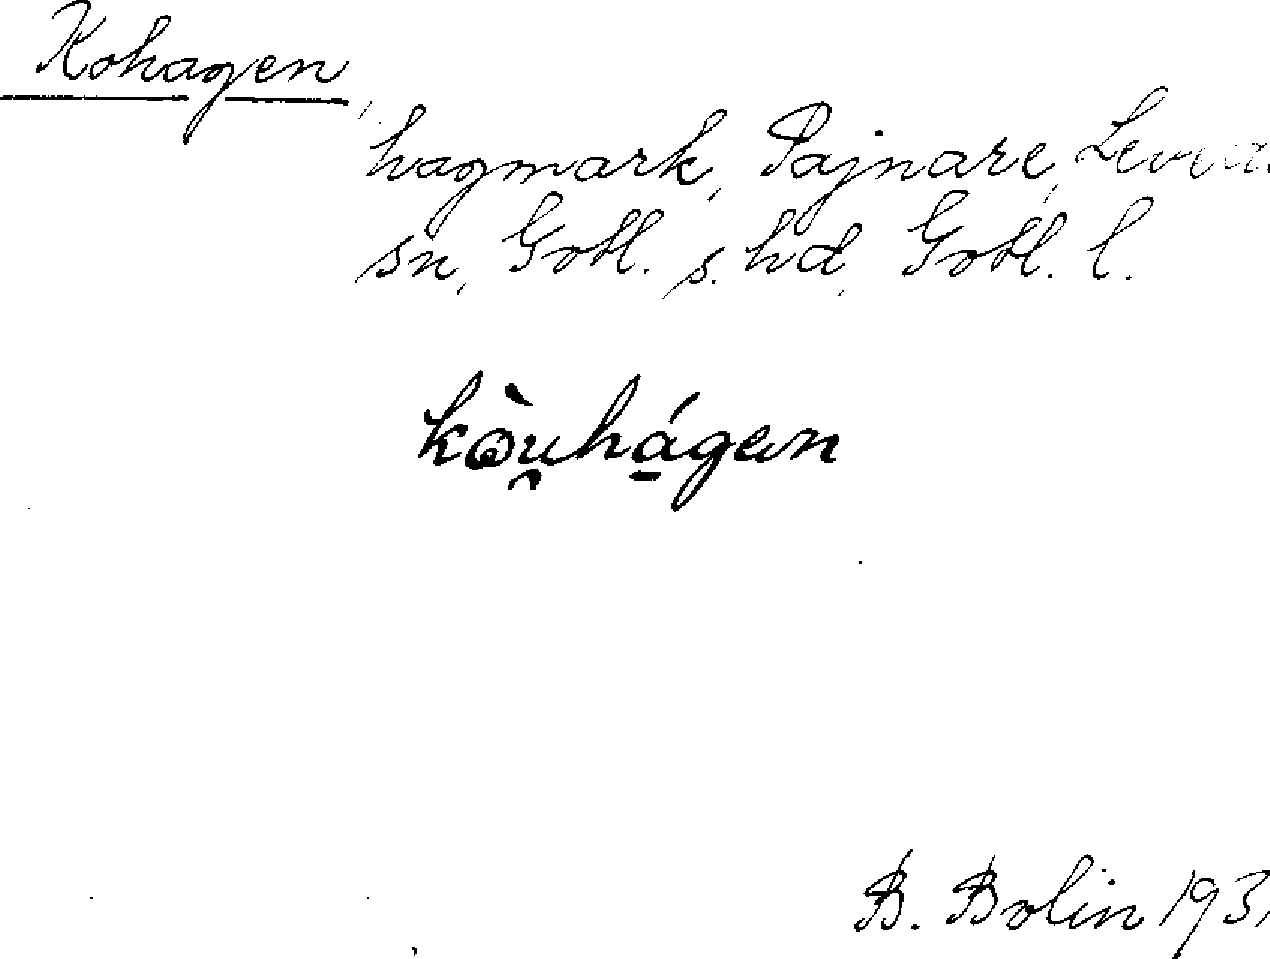 Kohagen,
hagmark, Pajnare, Levide
sn, Gotl. s. hd, Gotl. l.
kòu̯hágen
B. Bolin 193